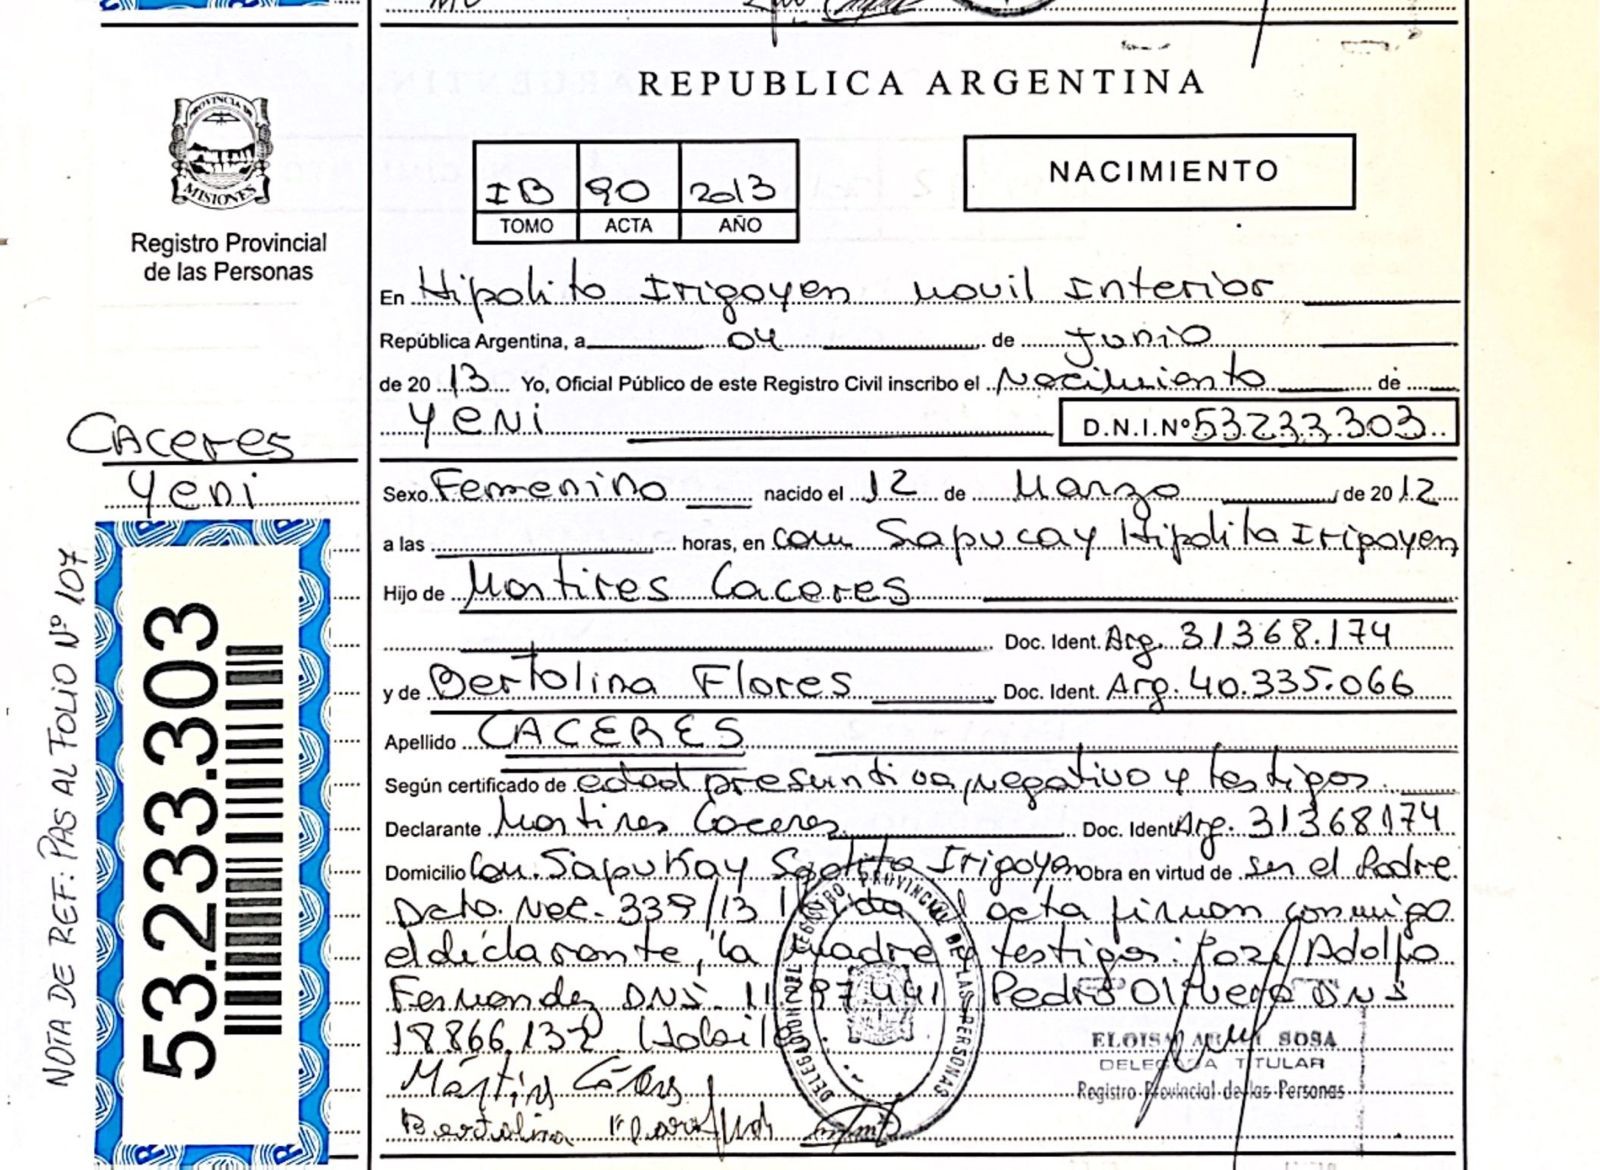 REPUBLICA ARGENTINA
PROVINCIA DE
MISIONES
Registro Provincial
de las Personas
IB 90 2013
TOMO ACTA AÑO
NACIMIENTO
En Hipolito Irigoyen Movil Interior
República Argentina, a 04 de Junio
de 2013 Yo, Oficial Público de este Registro Civil inscribo el Nacimiento de
Yeni D.N.I.Nº 53.233.303
Caceres
Yeni
Sexo Femenino nacido el 12 de Marzo de 2012
a las horas, en Com Sapucay Hipolito Irigoyen
Hijo de Martires Caceres
Doc. Ident. Arg. 31368.174
y de Bertolina Flores Doc. Ident. Arg. 40.335.066
Apellido CACERES
Según certificado de edad presuntiva, negativo y testigos
Declarante Martires Caceres Doc. Ident Arg. 31368174
Domicilio Com. Sapukay Irigoyen Obra en virtud de ser el Padre
Dcto. Nec. 339/13 acta firman conmigo
el declarante, la madre y testigos: José Adolfo
Fernandez DNI Pedro DNI
18866,132
Bertolina
DELEGACION DEL REGISTRO PROVINCIAL DE LAS PERSONAS
ELOISA SOSA
DELEGADA TITULAR
Registro Provincial de las Personas
53.233.303
NOTA DE REF: PAS AL FOLIO Nº 107